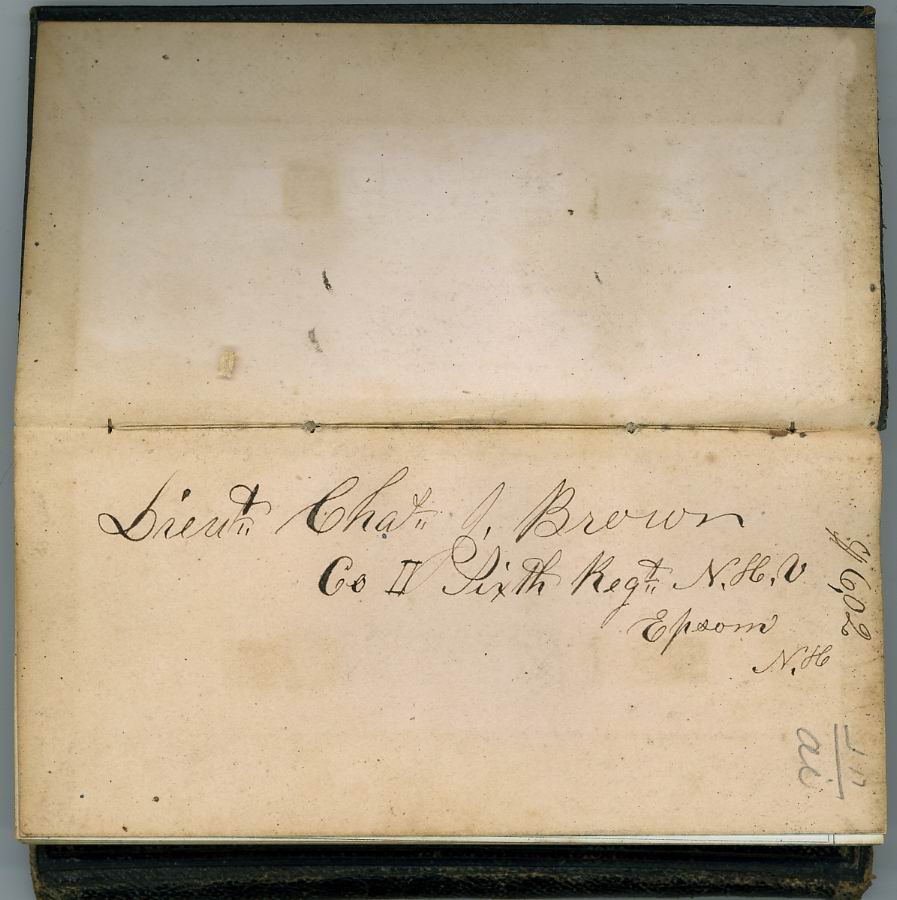 Lieut. Chas. J. Brown
Co II Sixth Regt. N.H.V
Epsom
N.H
602